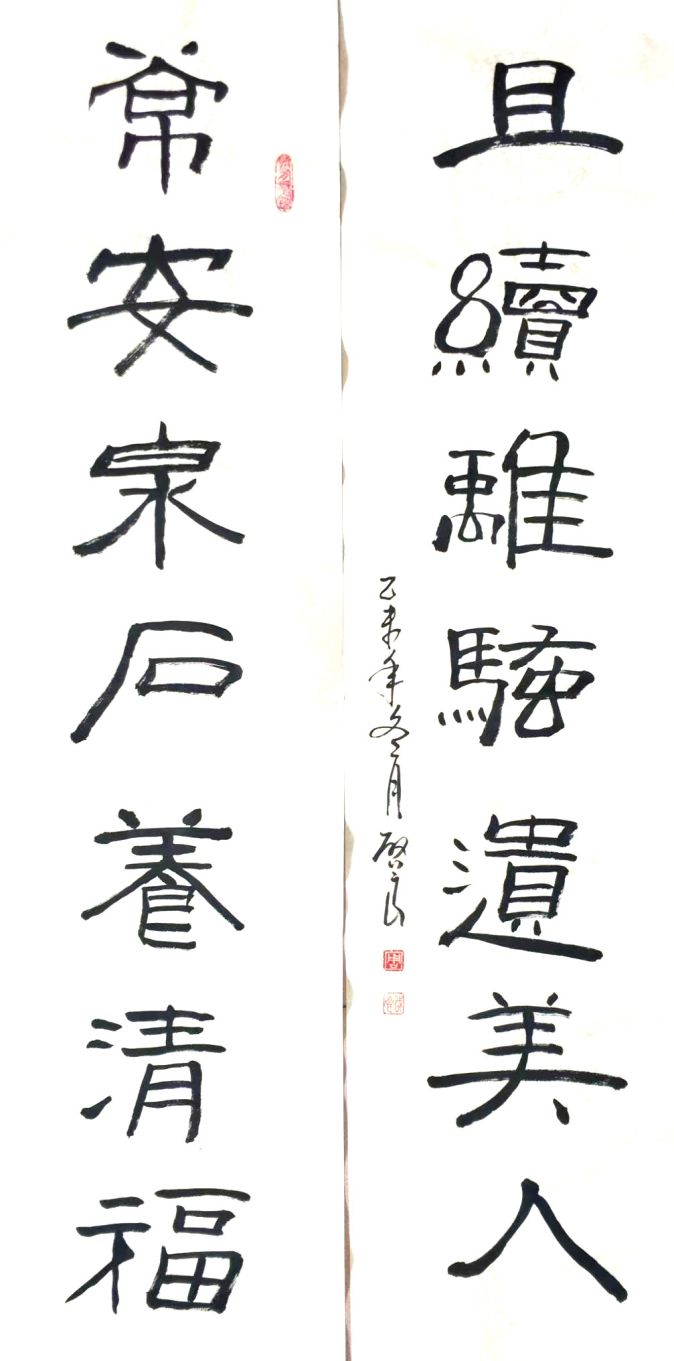 且續離騷遺美人
乙未年冬月
常安泉石養清福